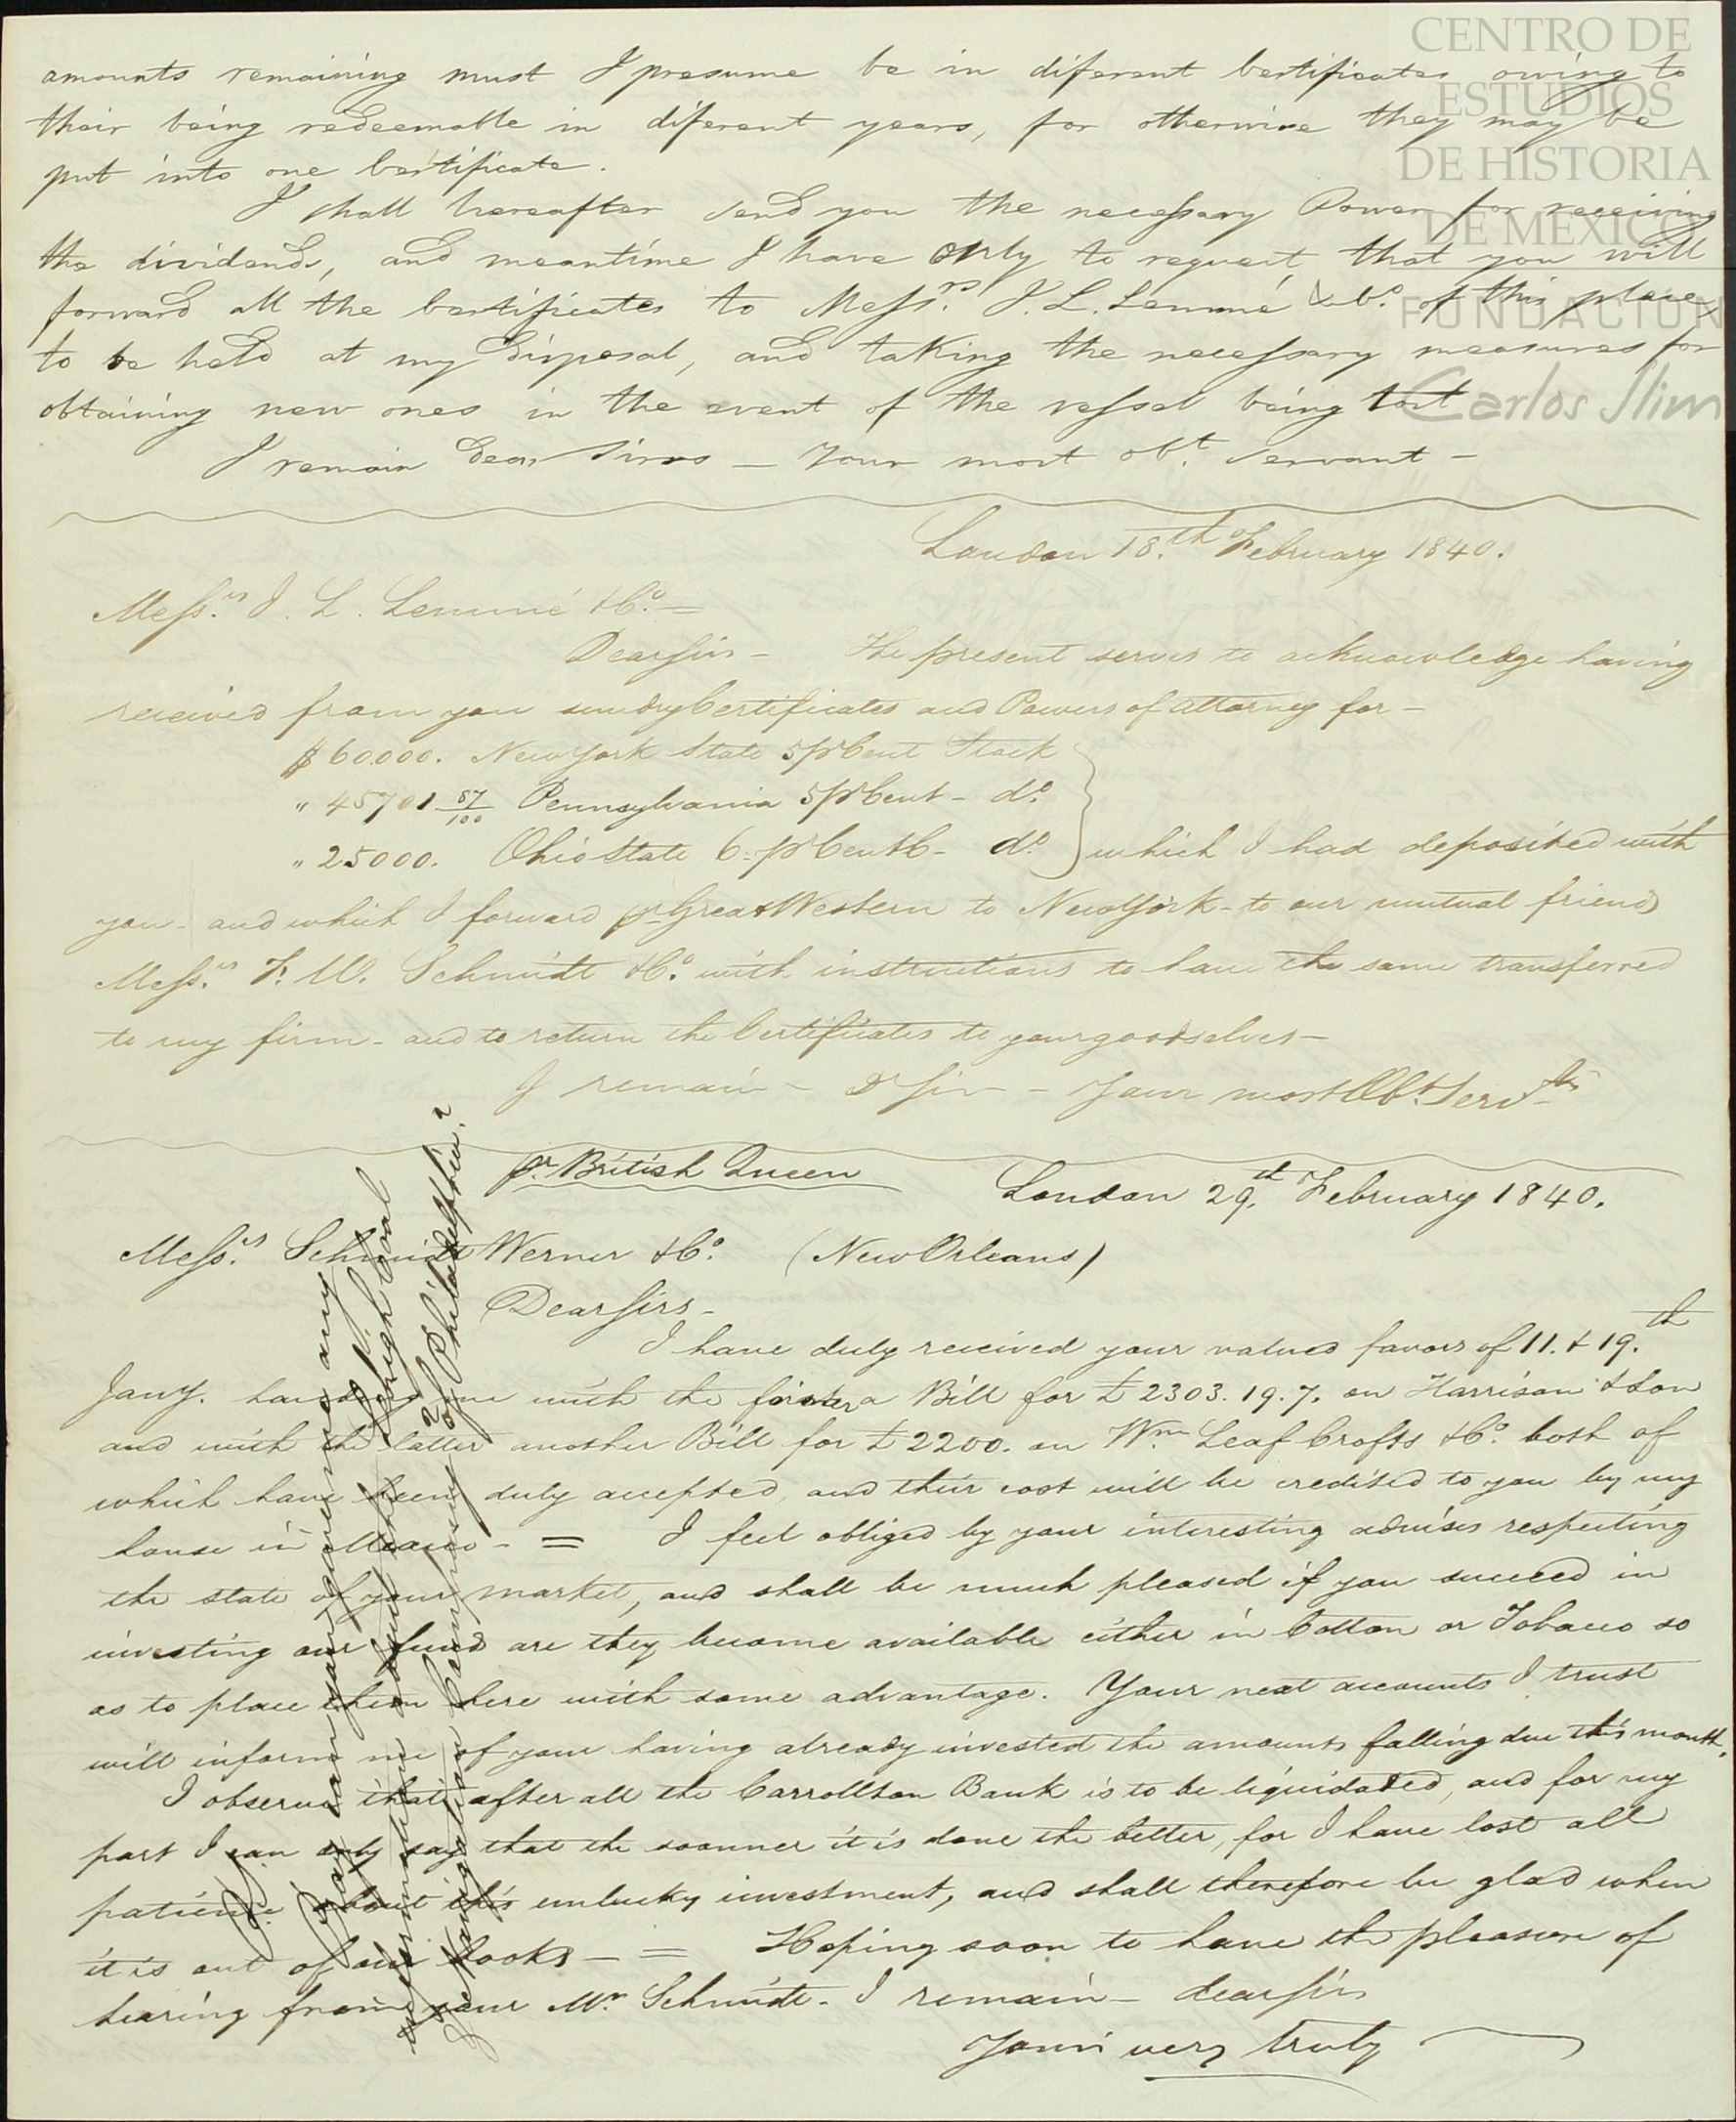 CENTRO DE
ESTUDIOS
DE HISTORIA
DE MEXICO
FUNDACIÓN
Carlos Slim
amounts remaining must I presume be in diferent Certificates owing to
their being redeemable in diferent years, for otherwise they may be
put into one Certificate.
I shall hereafter send you the necessary Power for receiving
the dividends, and meantime I have only to request that you will
forward all the Certificates to Mess.rs J. L. Lemmé & Co. of this place,
to be held at my disposal, and taking the necessary measures for
obtaining new ones in the event of the vessel being lost
I remain dear Sirs — Your most obt. Servant —
London 18.th February 1840.
Mess.rs J. L. Lemmé & Co. =
Dear Sirs — The present serves to acknowledge having
received from you sundry Certificates and Powers of Attorney for —
$ 60.000. New York State 5 pr Cent Stock
" 45701 87/100 Pennsylvania 5 pr Cent — do.
" 25000. Ohio State 6. pr Cent — do. } which I had deposited with
you — and which I forward pr Great Western to New York — to our mutual friend
Mess.rs F. W. Schmidt & Co. with instructions to have the same transferred
to my firm — and to return the Certificates to your goodselves —
I remain — Dr Sir — Your most Obt. Serv.
pr. British Queen London 29.th February 1840.
Mess.rs Schmidt Werner & Co. (New Orleans)
Dear Sirs —
I have duly received your valued favors of 11. & 19.th
Jany. handing me with the former a Bill for £ 2303. 19. 7. on Harrison & Son
and with the latter another Bill for £ 2200. on Wm. Leaf Crofts & Co. both of
which have been duly accepted, and their cost will be credited to you by my
house in Mexico — = I feel obliged by your interesting advises respecting
the state of your market, and shall be much pleased if you succeed in
investing our fund are they become available either in Cotton or Tobacco so
as to place them here with some advantage. Your next accounts I trust
will inform me of your having already invested the amounts falling due this month.
I observe that after all the Carrollton Bank is to be liquidated, and for my
part I can only say that the soonner it is done the better, for I have lost all
patience about this unlucky investment, and shall therefore be glad when
it is out of our books — = Hoping soon to have the pleasure of
hearing from your Mr. Schmidt — I remain — dear Sirs
Yours very truly
can you give me any
information about the Lehigh Coal
& Navigation Company of Philadelphia?